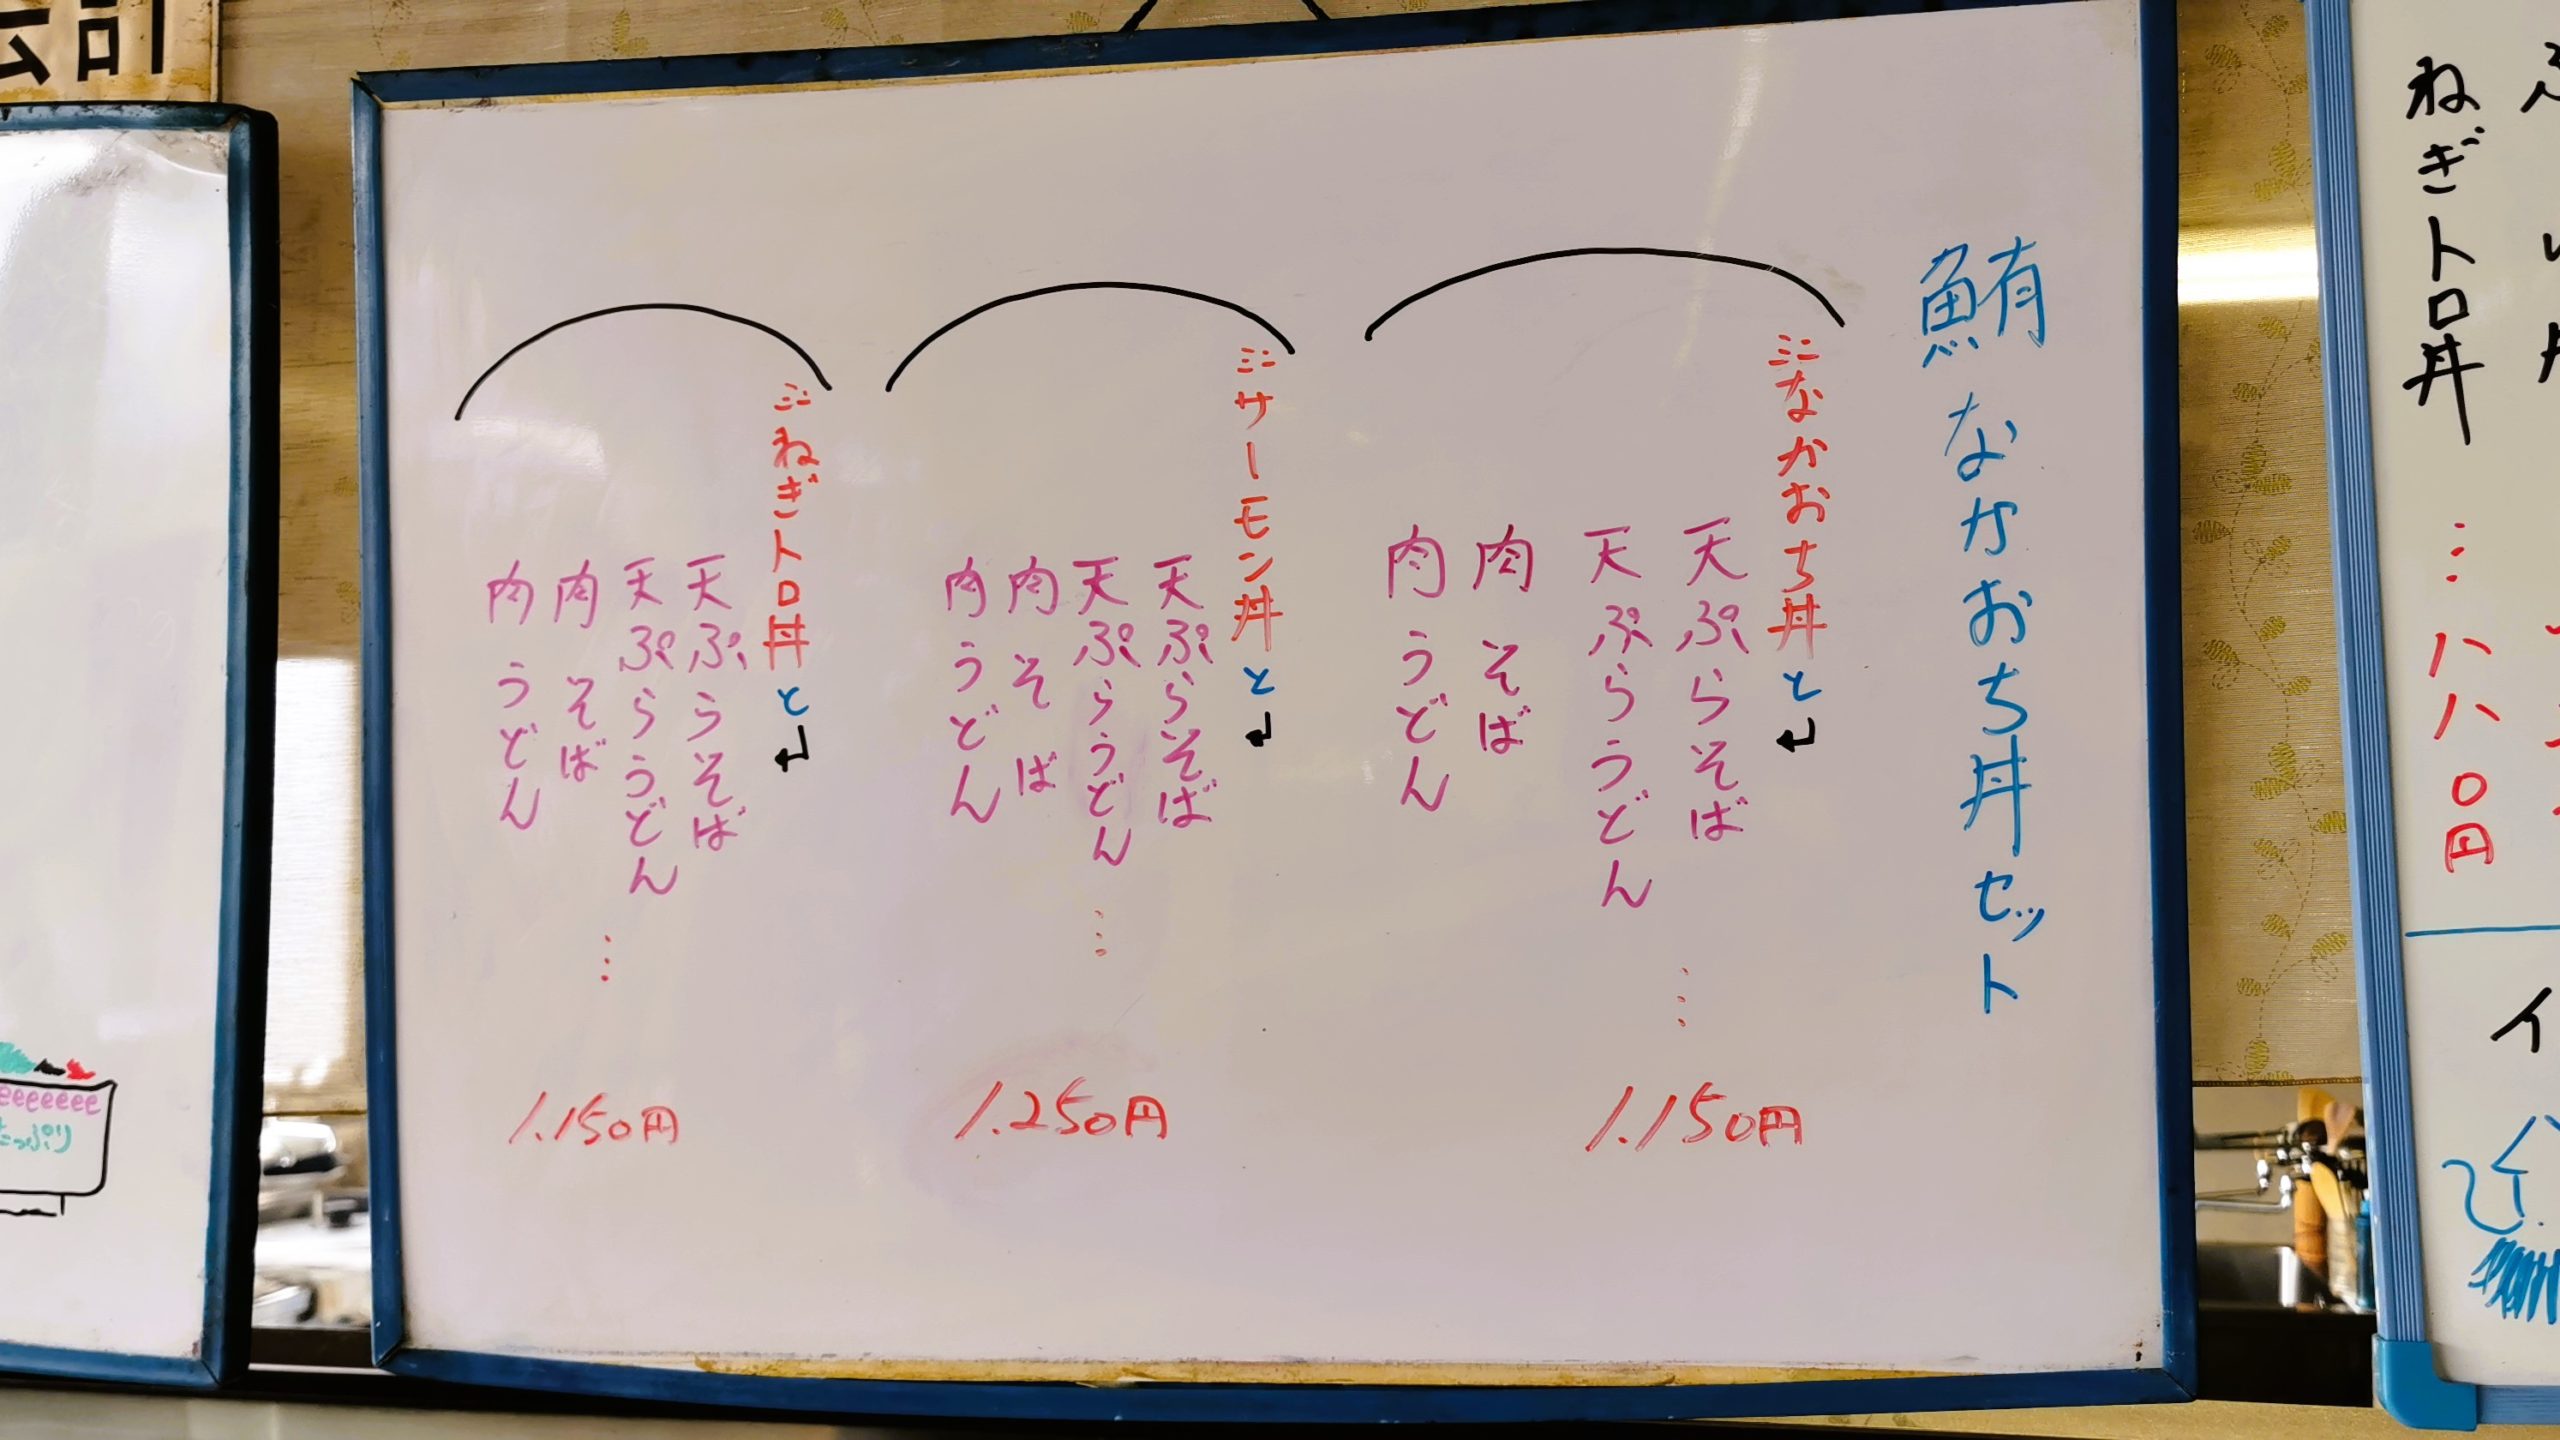 ねぎトロ丼…八八〇円
鮪なかおち丼セット
ミニなかおち丼と
天ぷらそば
天ぷらうどん
肉そば
肉うどん
…
1.150円
ミニサーモン丼と
天ぷらそば
天ぷらうどん
肉そば
肉うどん
…
1.250円
ミニねぎトロ丼と
天ぷらそば
天ぷらうどん
肉そば
肉うどん
…
1.150円
eeeeeee
たっぷり